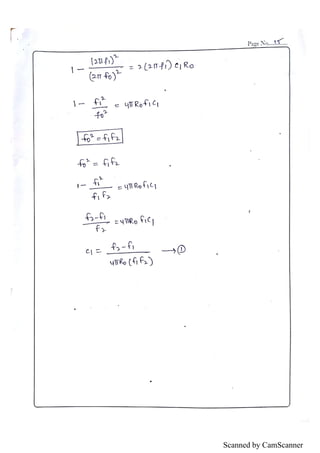 Page No. 45
1 - (2πf₁)² / (2πf₀)² = 2(2πf₁) C₁ R₀
1 - f₁² / f₀² = 4πR₀f₁C₁
f₀² = f₁f₂
f₀² = f₁f₂
1 - f₁² / f₁f₂ = 4πR₀f₁C₁
f₂-f₁ / f₂ = 4πR₀f₁C₁
C₁ = f₂-f₁ / 4πR₀(f₁f₂) → ①
Scanned by CamScanner